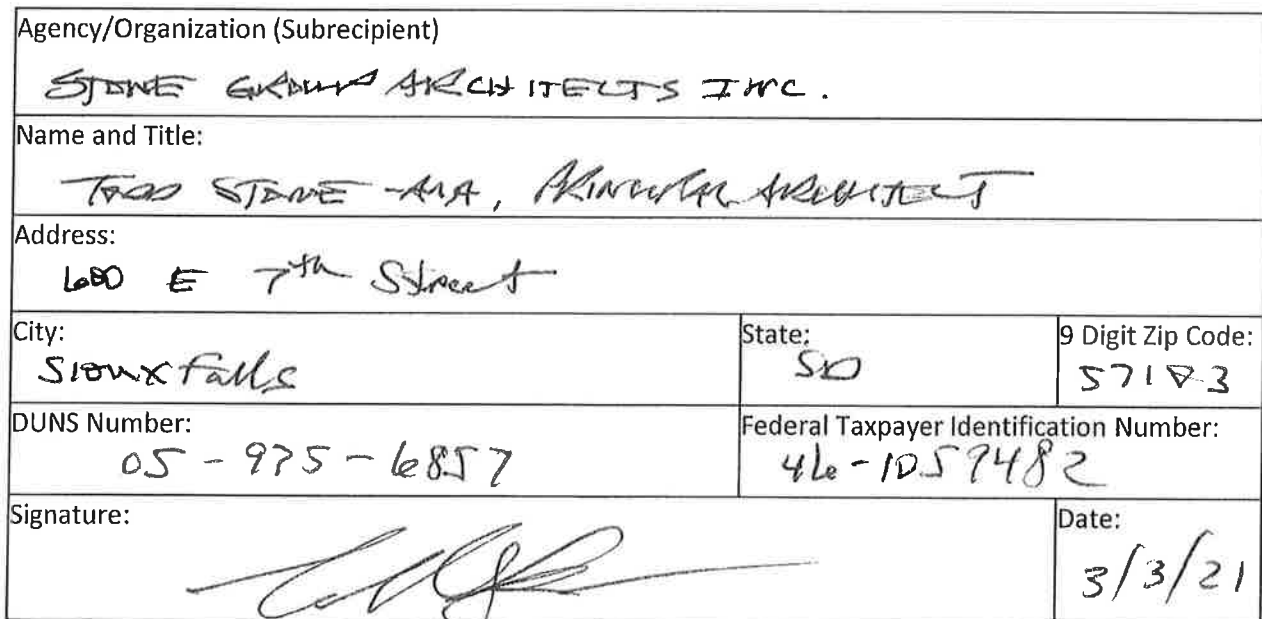 Agency/Organization (Subrecipient)
STONE GROUP ARCHITECTS INC.
Name and Title:
TODD STONE - AIA, PRINCIPAL ARCHITECT
Address:
600 E 7th Street
City:
State:
9 Digit Zip Code:
Sioux Falls
SD
57103
DUNS Number:
Federal Taxpayer Identification Number:
05-975-6857
46-1059482
Signature:
Date:
3/3/21